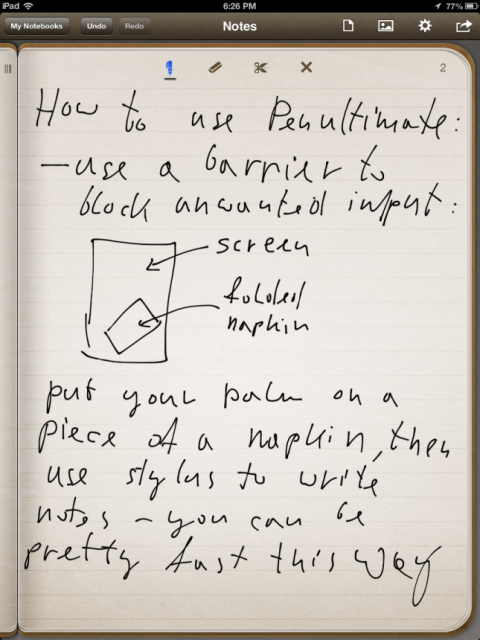 iPad 6:26 PM 77%
My Notebooks Undo Redo Notes
2
How to use Penultimate:
- use a barrier to
block unwanted input:
screen
folded
napkin
put your palm on a
piece of a napkin, then
use stylus to write
notes - you can be
pretty fast this way